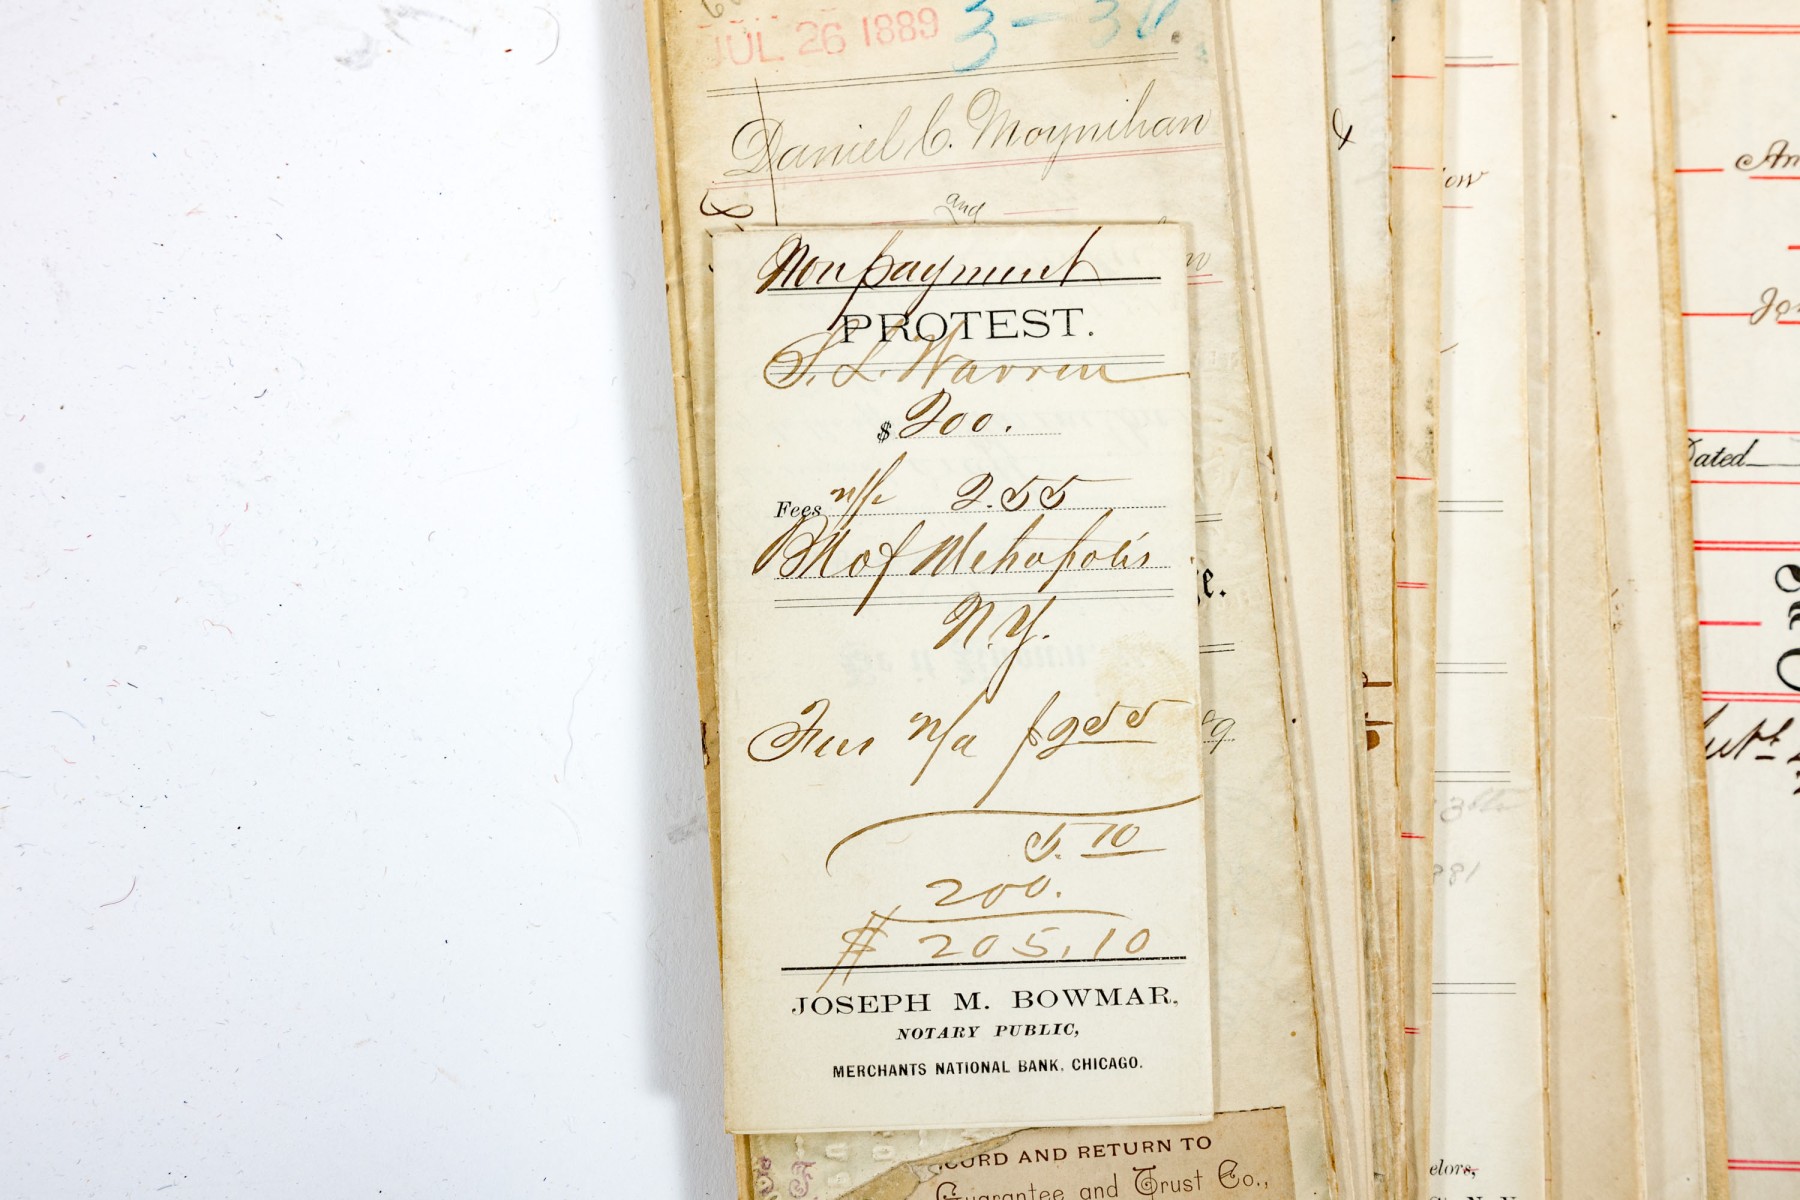 JUL 26 1889 3-30
Daniel C. Moynihan
and
Nonpayment
PROTEST.
S. L. Warren
$ 200.
Fees n/p 2.55
Bk of Metropolis
N.Y.
Fees n/a $2.55
5.10
200.
$ 205.10
JOSEPH M. BOWMAR,
NOTARY PUBLIC,
MERCHANTS NATIONAL BANK, CHICAGO.
CORD AND RETURN TO
Guarantee and Trust Co.,
&
ow
13th
881
elors,
An
Jo
Dated